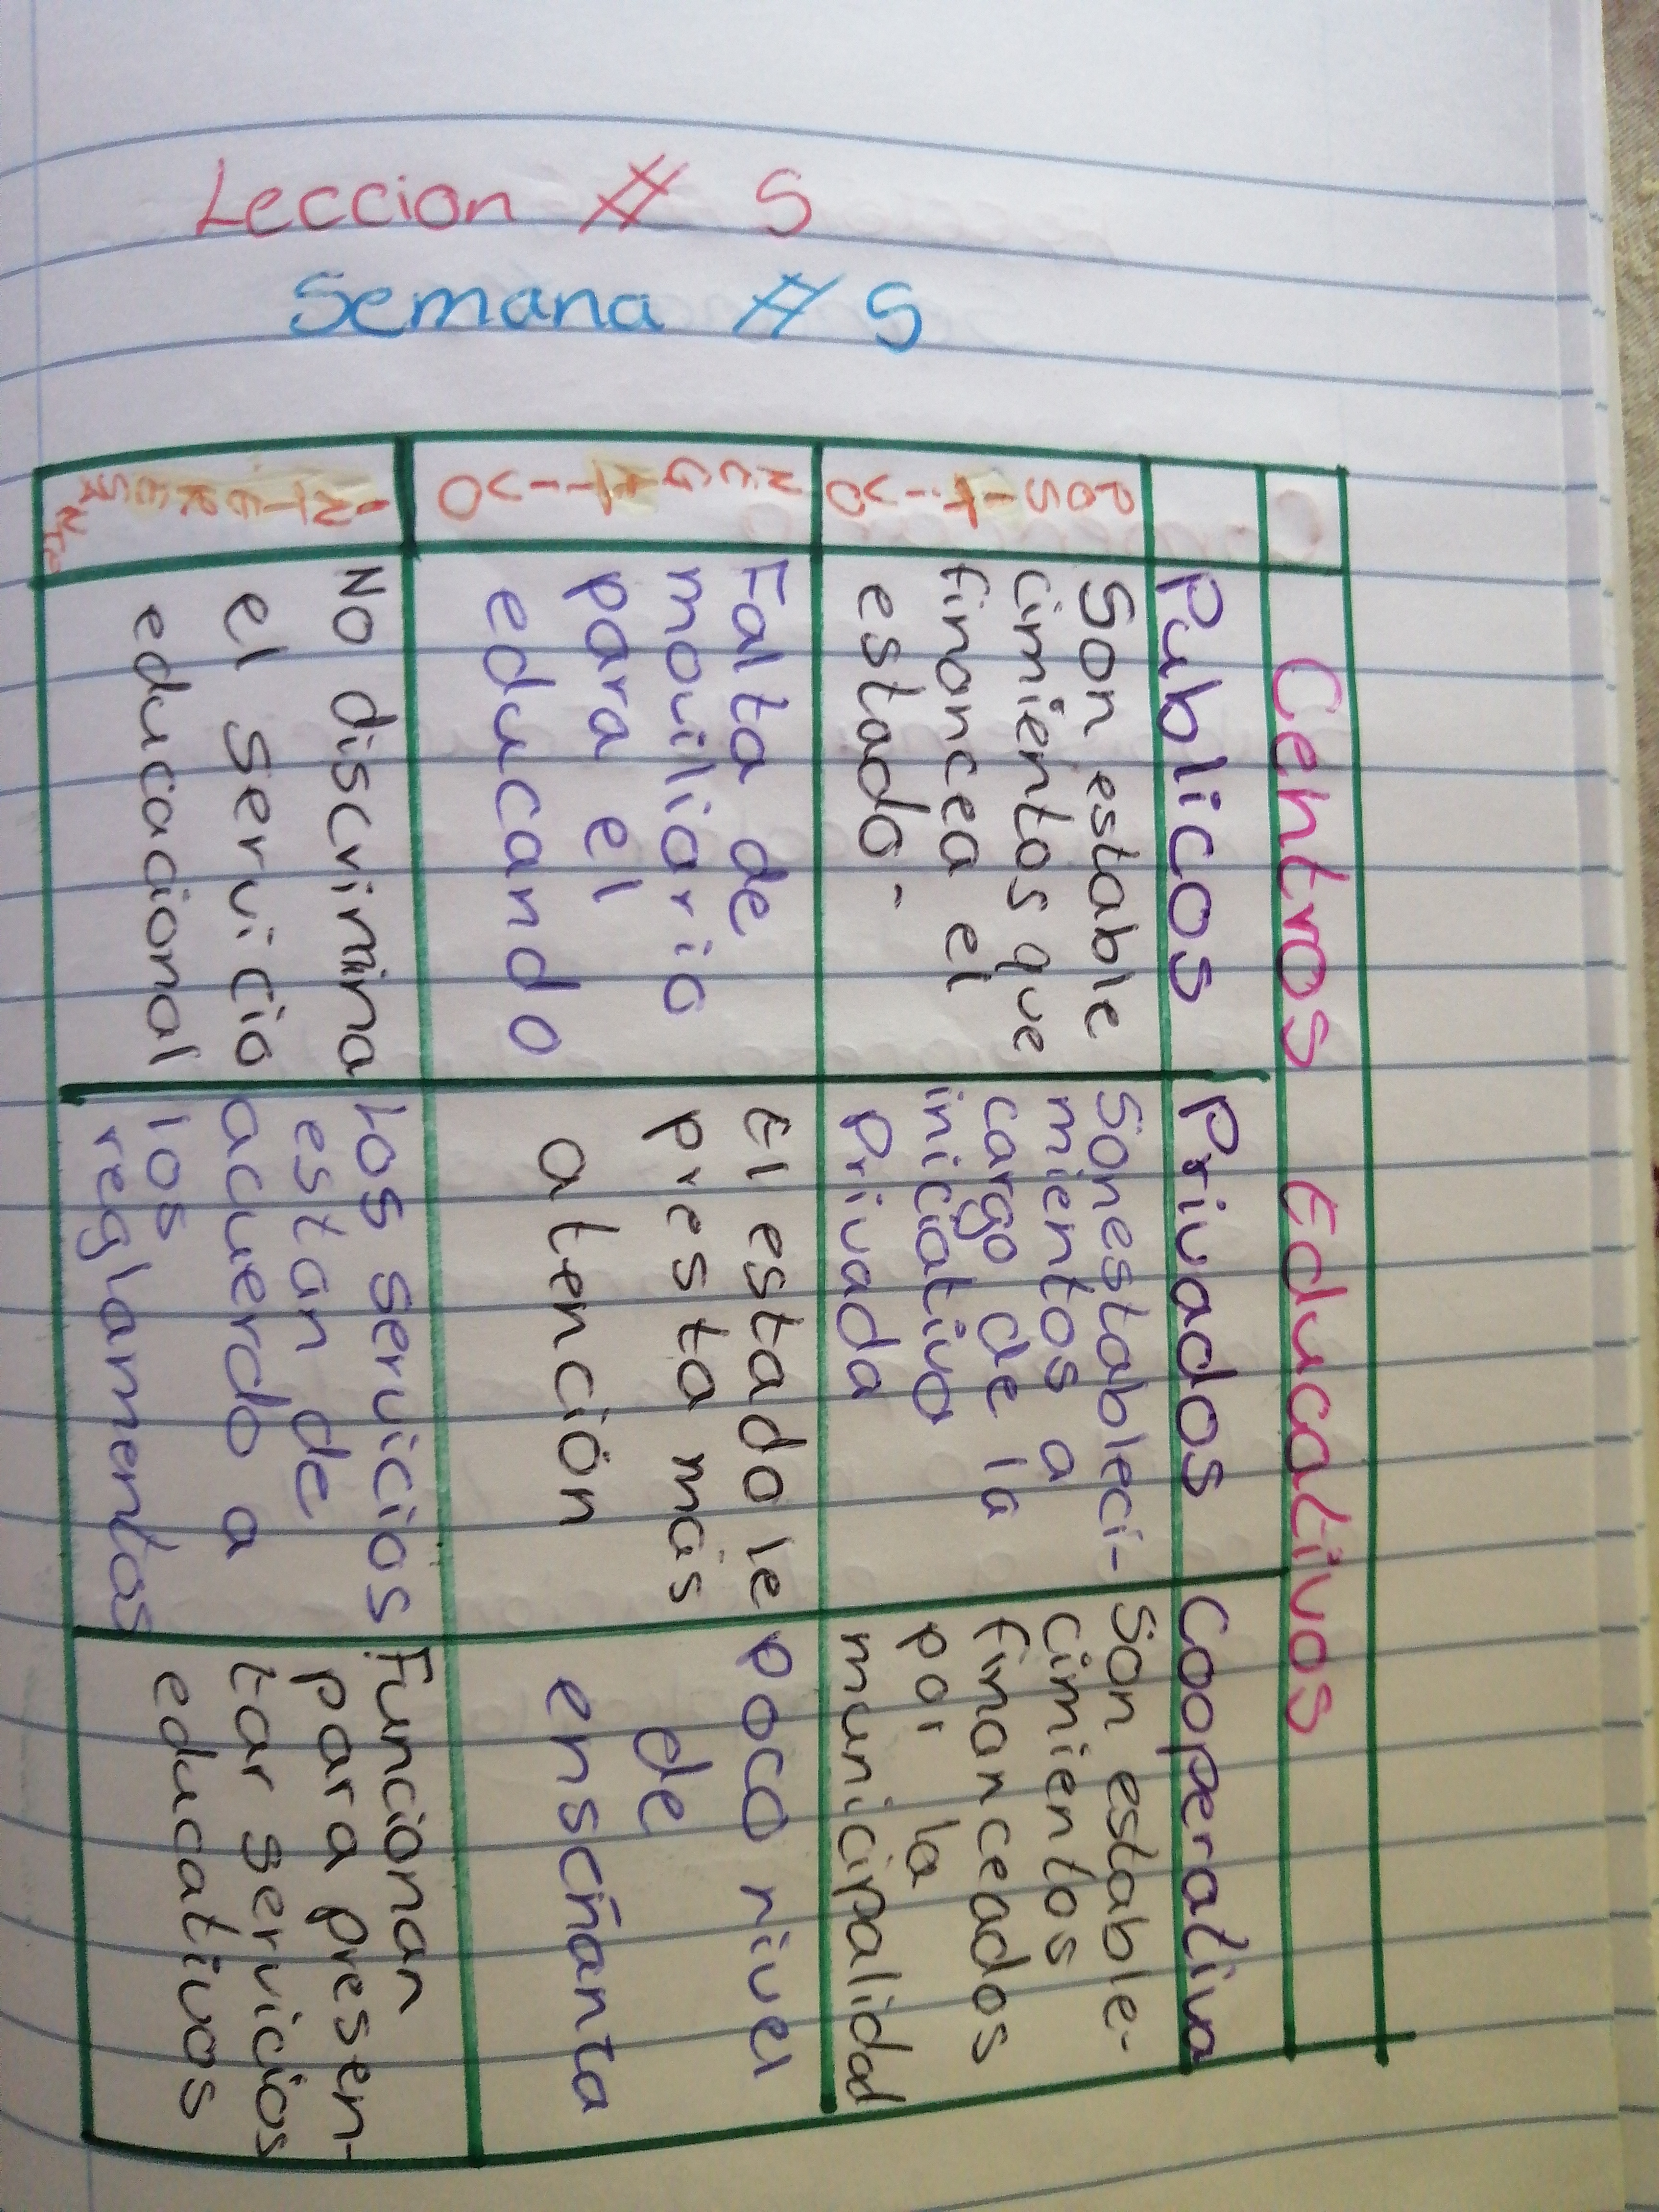 Leccion # 5
Semana # 5
Centros Educativos
Publicos Privados Cooperativa
POSITIVO
Son estable
cimientos que
financea el
estado.
Son estableci-
mientos a
cargo de la
iniciativa
Privada
Son estable-
cimientos
financeados
por la
municipalidad
NEGATIVO
Falta de
moviliario
para el
educando
El estado le
presta más
atención
poco nivel
de
enseñanza
INTERESANTE
No discrimina
el servicio
educacional
Los servicios
estan de
acuerdo a
los
reglamentos
Funcionan
para presen-
tar servicios
educativos